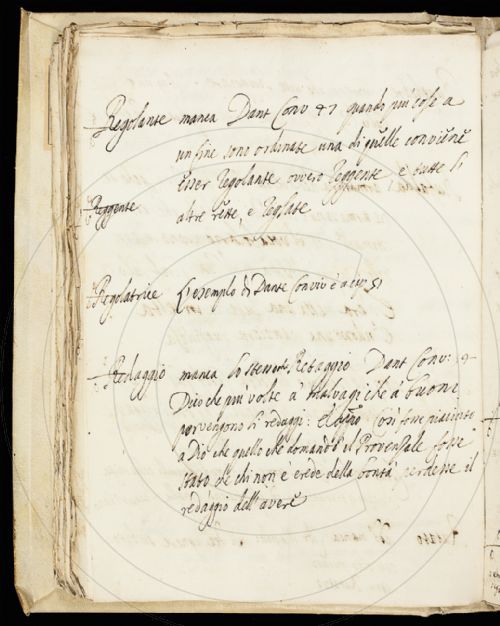 Regolante manca Dant Conv 87 quando più cose a
un fine sono ordinate una di quelle conviene
esser Regolante ovvero Reggente e tutte l'
Reggente
altre rette, e Regolate
Regolatrice l'esempio di Dante Conviv è a
Redaggio manca Retaggio Dant Conv:
Dico che più volte a' Malvagi che a' buoni
pervengono li redaggi: così fosse piaciuto
a Dio che quello che domandò il Provenzale fosse
stato che chi non è erede della bontà perdesse il
redaggio dell'avere